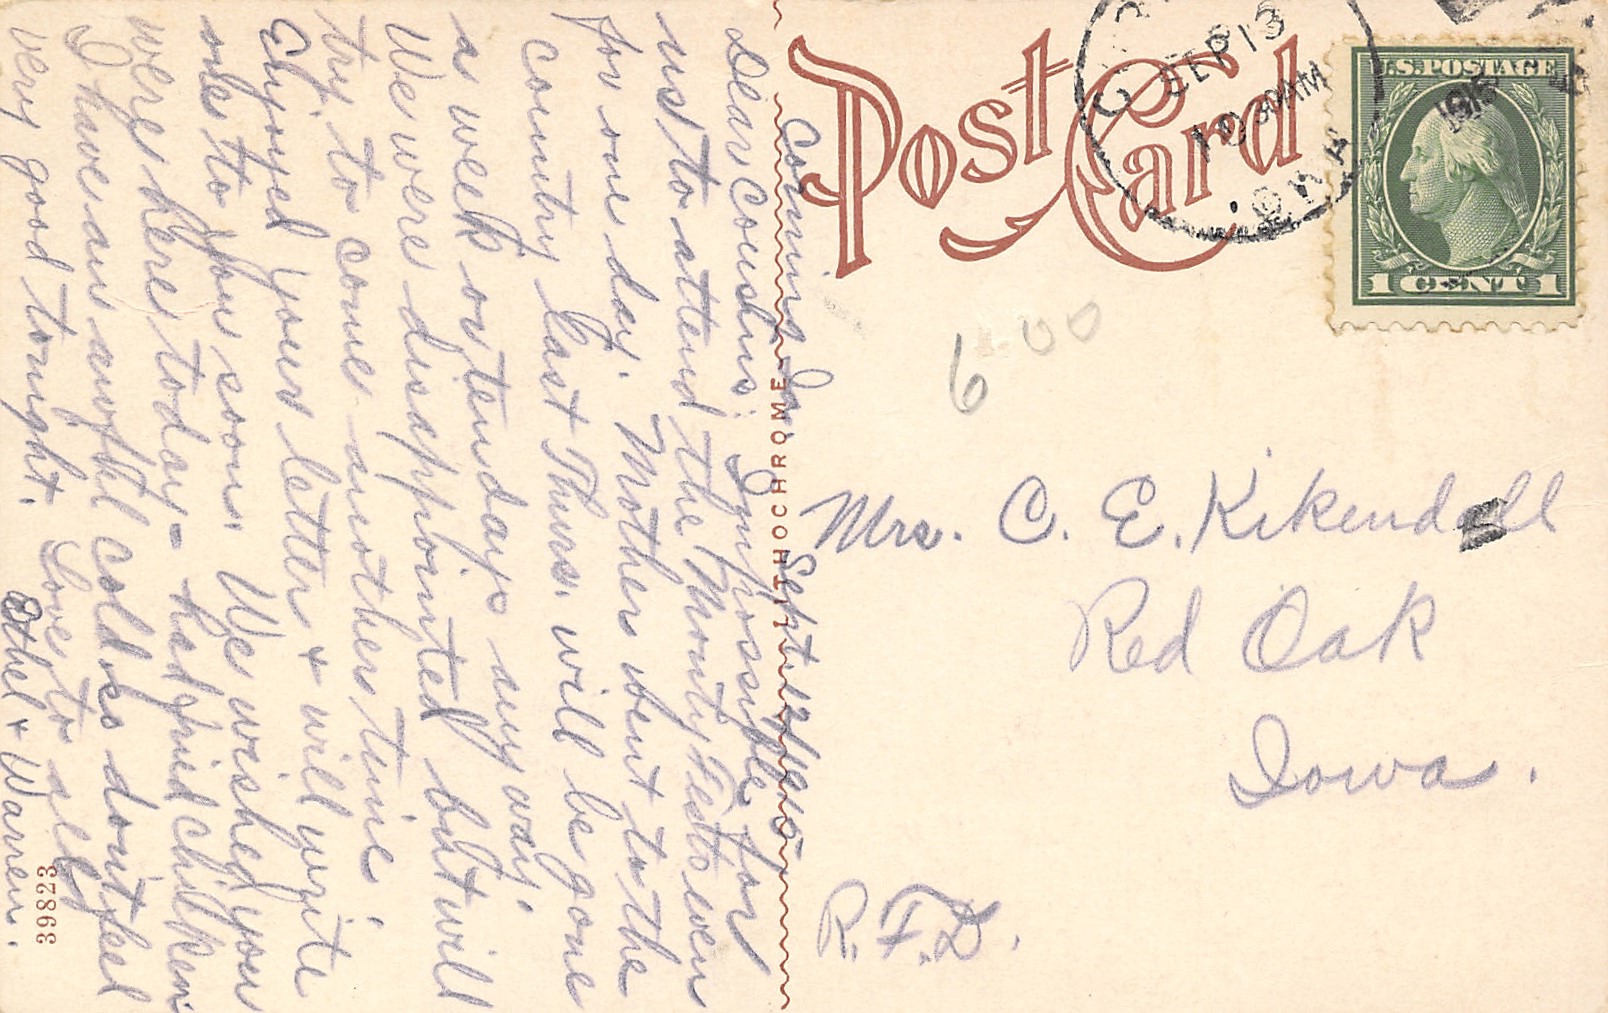 Post Card
CORNING
SEP 13
10 30 AM
1915
IOWA
U.S. POSTAGE
1 CENT 1
600
Mrs. C. E. Kikendall
Red Oak
Iowa.
R.F.D.
LITHOCHROME
39823
Corning Ia. Sept. 12, 1915
Dear Cousins: Impossible for
us to attend the Monty Fest even
for one day. Mother went to the
country last Thurs. will be gone
a week or ten days anyway.
We were disappointed but will
try to come another time.
Enjoyed your letter & will write
one to you soon. We wished you
were here today - had fried chicken
I have an awful cold so don't feel
very good tonight. Love to all,
Ethel & Warren.